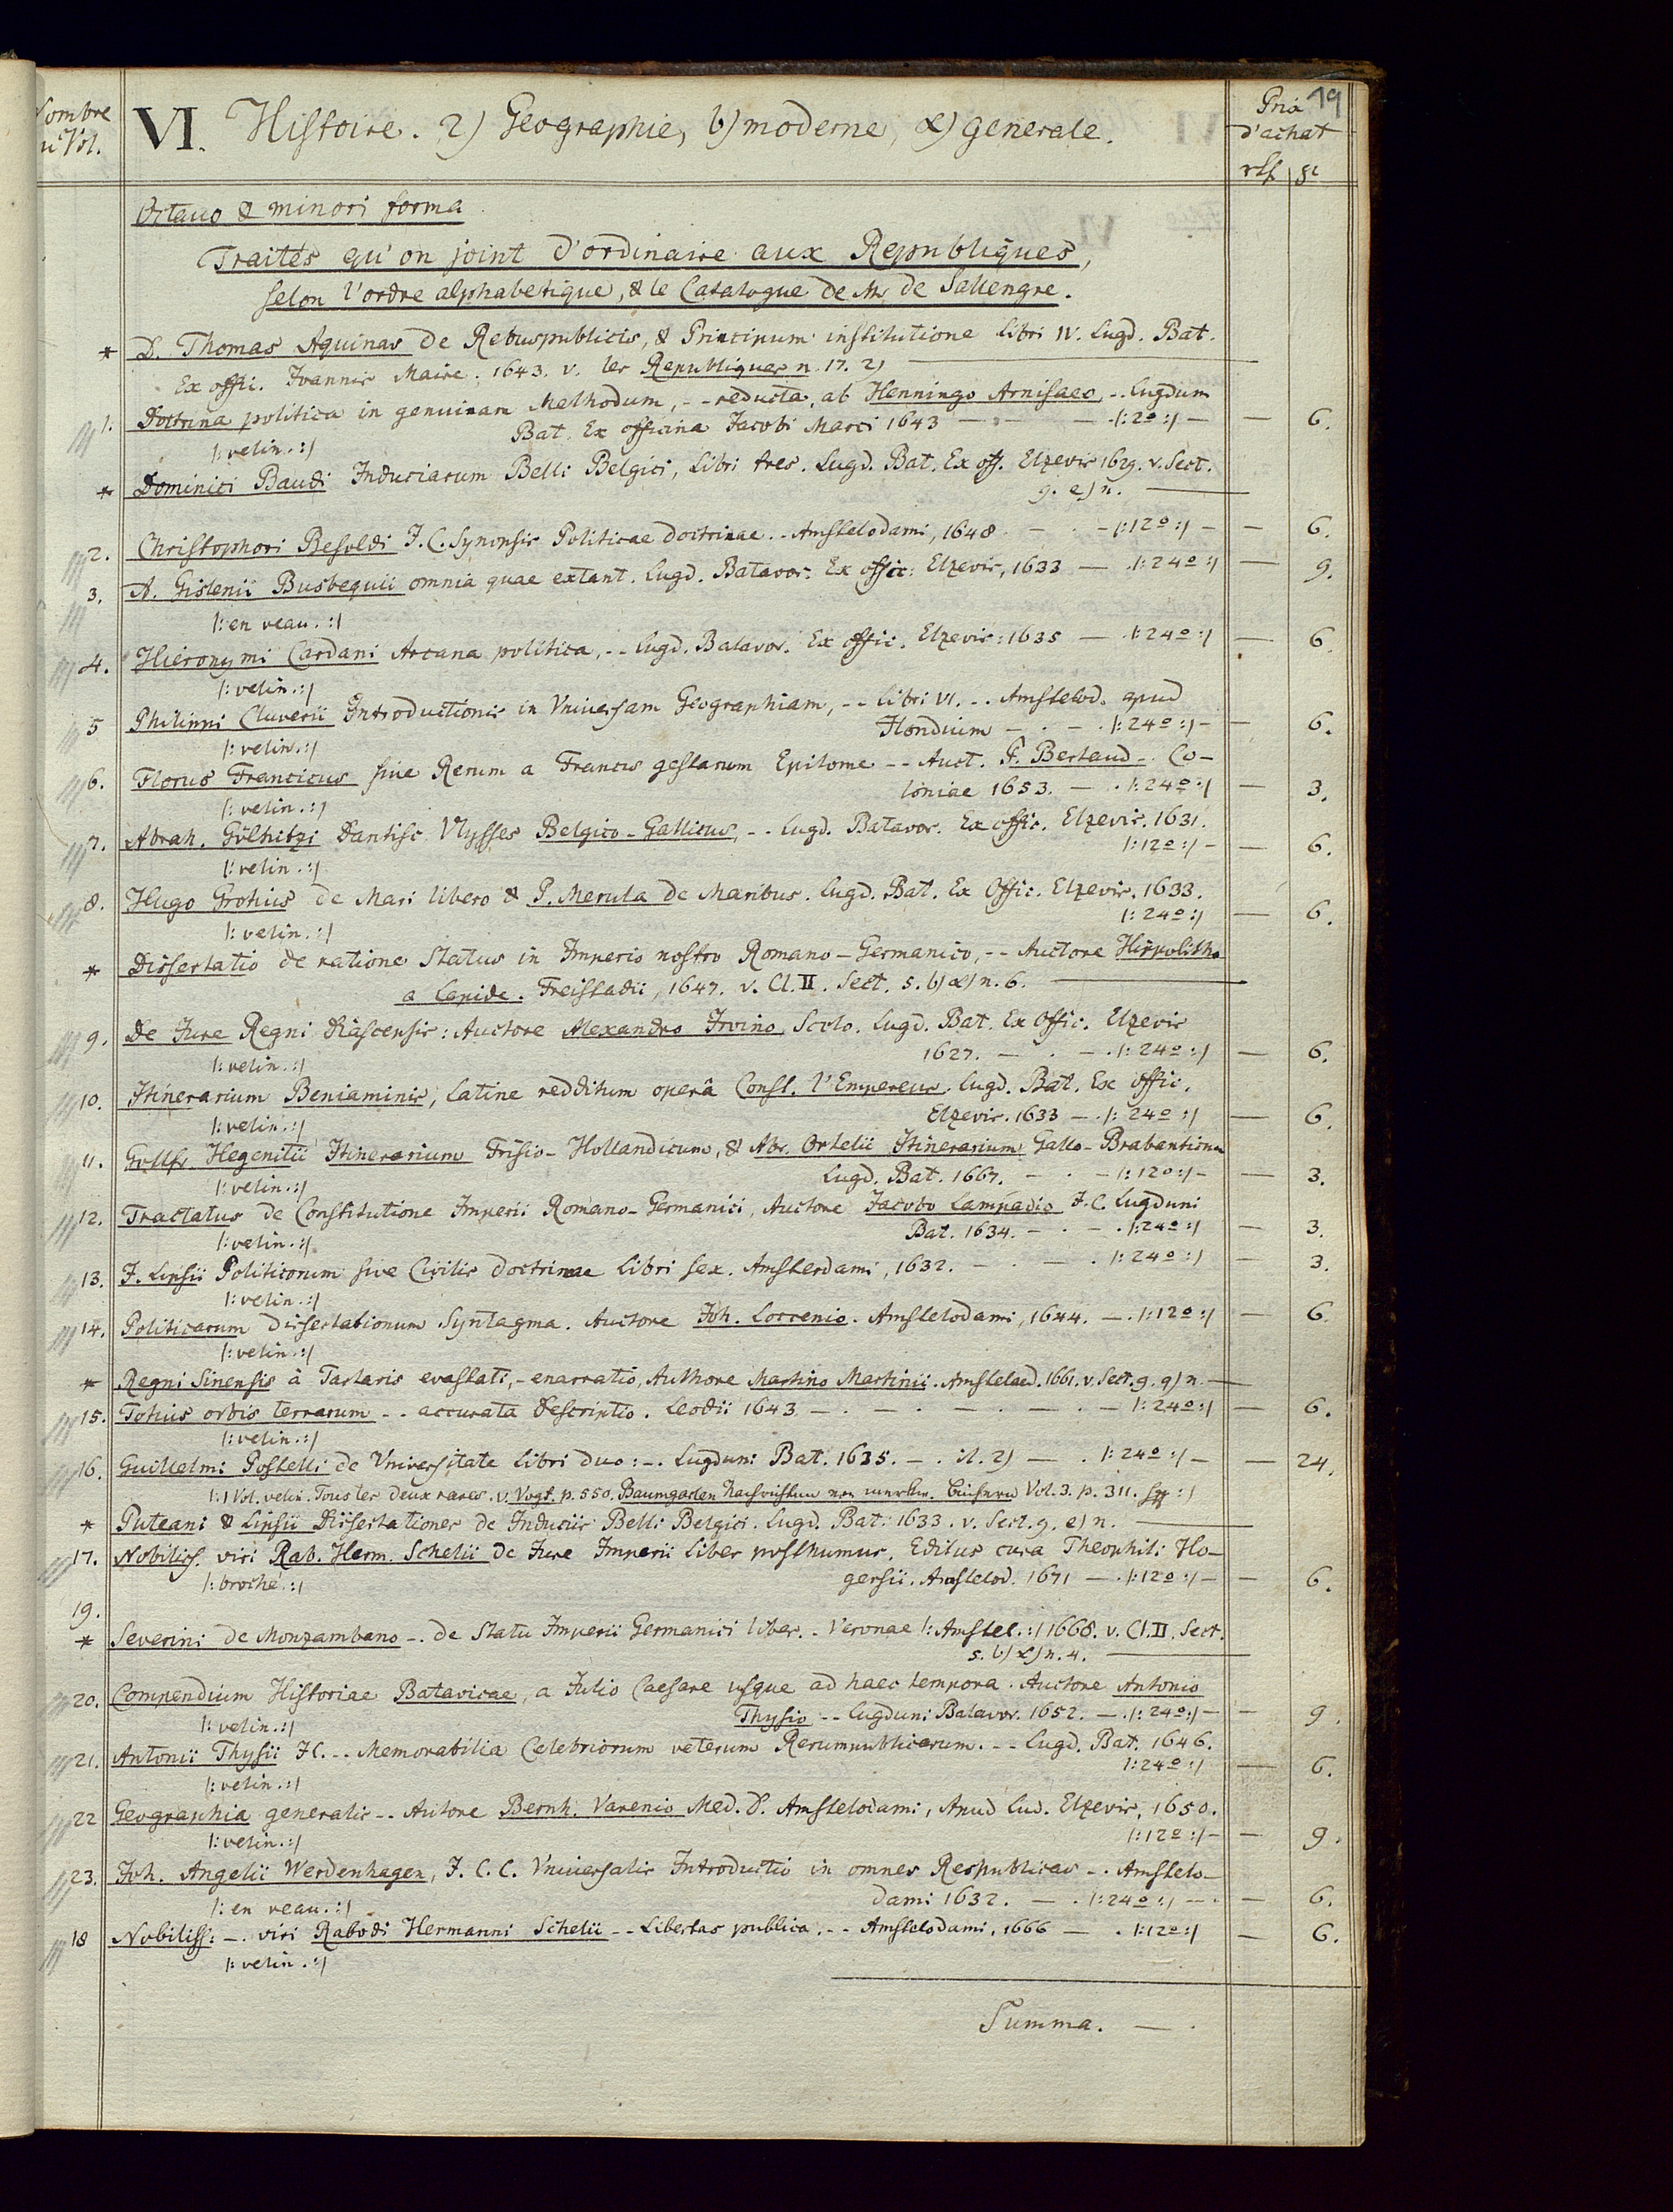 19
Nombre
u Vol.
VI. Histoire. 2) Geographie, b) moderne, α) generale.
Prix
d'achat
Octavo & minori forma
Traités qu'on joint d'ordinaire aux Republiques,
selon l'ordre alphabetique, & le Catalogue de Mr. de Sallengre.
* D. Thomas Aquinas de Rebuspublicis, & Principum institutione libri IV. Lugd. Bat.
Ex offic. Ioannis Maire. 1643. v. les Republiques n. 17. 2)
1. Doctrina politica in genuinam Methodum, -- reducta, ab Henningo Arnisaeo, -. Lugdum
Bat. Ex officina Jacobi Marci 1643 — - — - |: 12º :| — — 6.
|: velin. :|
* Dominici Baudi Induciarum Belli Belgici, Libri tres. Lugd. Bat. Ex off. Elzevir 1629. v. Sect.
9. e) n.
2. Christophori Besoldi J. C. Synopsis Politicae doctrinae. - Amstelodami, 1648 - — - |: 12º :| — — 6.
3. A. Gislenii Busbequii omnia quae extant. Lugd. Batavor. Ex offic: Elzevir, 1633 — . |: 24º :| — 9.
|: en veau. :|
4. Hieronymi Cardani Arcana politica, -- Lugd. Batavor. Ex offic. Elzevir: 1635 — . |: 24º :| — 6
|: velin. :|
5 Philippi Cluverii Introductionis in Vniversam Geographiam, -- libri VI. -. Amstelod. apud
Hondium — . - . |: 24º :| - — 6.
|: velin. :|
6. Florus Francicus sive Rerum a Francis gestarum Epitome -- Auct. P. Bertaud -. Co-
loniae 1653. — . |: 24º :| — 3.
|: velin. :|
7. Abrah. Gölnitzi Dantisc. Vlysses Belgico-Gallicus, -. Lugd. Batavor. Ex offic. Elzevir. 1631.
|: 12º :| - — 6.
|: velin. :|
8. Hugo Grotius de Mari libero & P. Merula de Maribus. Lugd. Bat. Ex Offic. Elzevir. 1633.
|: 24º :| — 6.
|: velin. :|
* Dissertatio de ratione Status in Imperio nostro Romano-Germanico, -- Auctore Hippolitho
a Lapide. Freistadii, 1647. v. Cl. II. Sect. 5. b) α) n. 6.
9. De Jure Regni Diascensis: Auctore Alexandro Irvino, Scoto. Lugd. Bat. Ex Offic. Elzevir
1627. — . — . |: 24º :| — 6.
|: velin. :|
10. Itinerarium Beniaminis, Latine redditum operâ Const. l'Empereur. Lugd. Bat. Ex offic.
Elzevir. 1633 — . |: 24º :| — 6.
|: velin. :|
11. Gottfr. Hegenitii Itinerarium Frisio-Hollandicum, & Abr. Ortelii Itinerarium Gallo-Brabanticum
Lugd. Bat. 1667. - . - |: 12º :| - — 3.
|: velin. :|
12. Tractatus de Constitutione Imperii Romano-Germanici, Auctore Jacobo Lampadio J. C. Lugduni
Bat. 1634. - . — . |: 24º :| — 3.
|: velin. :|
13. J. Lipsii Politicorum sive Civilis doctrinae libri sex. Amsterdami, 1632. — . — . |: 24º :| — 3.
|: velin. :|
14. Politicarum dissertationum Syntagma. Auctore Joh. Loccenio. Amstelodami, 1644. — . |: 12º :| — 6.
|: velin. :|
* Regni Sinensis à Tartaris evastati, - enarratio, Authore Martino Martinii. Amstelaed. 1661. v. Sect. 9. q) n.
15. Totius orbis terrarum -. accurata descriptio. Leodii 1643. — . — . — . — . — |: 24º :| — 6.
|: velin. :|
16. Guillelmi Postelli de Vniversitate libri duo: -. Lugduni Bat. 1635. — . il. 2) — . |: 24º :| — — 24.
|: 1 Vol. velin. Tous les deux rares. v. Vogt. p. 550. Baumgarten Nachrichten von merkw. Büchern Vol. 3. p. 311. sqq :|
* Puteani & Lipsii Dissertationes de Induciis Belli Belgici. Lugd. Bat. 1633. v. Sect. 9. e) n.
17. Nobiliss. viri Rab. Herm. Schelii de Jure Imperii liber posthumus. Editus cura Theophili Ho-
gersii. Amstelod. 1671 — . |: 12º :| - — 6.
|: broché. :|
19.
* Severini de Monzambano -. de Statu Imperii Germanici liber. - Veronae |: Amstel. :| 1668. v. Cl. II. Sect.
5. b) α) n. 4.
20. Compendium Historiae Batavicae, a Julio Caesare usque ad haec tempora. Auctore Antonio
Thysio -- Lugduni Batavor. 1652. — . |: 24º :| - — 9.
|: velin. :|
21. Antonii Thysii JC. -. Memorabilia Celebriorum veterum Rerumpublicarum. -- Lugd. Bat. 1646.
|: 24º :| — 6.
|: velin. :|
22 Geographia generalis -. Autore Bernh. Varenio Med. D. Amstelodami, Apud Lud. Elzevir, 1650.
|: 12º :| - — 9.
|: velin. :|
23. Joh. Angelii Werdenhagen, J. C. C. Vniversalis Introductio in omnes Respublicas -. Amstelo-
dami 1632. — . |: 24º :| — . — 6.
|: en veau. :|
18 Nobiliss: -. viri Rabodi Hermanni Schelii -. Libertas publica. -- Amstelodami, 1666 — . |: 12º :| — 6.
|: velin. :|
Summa. — .